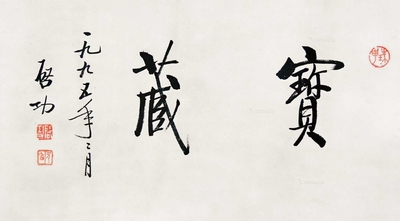 寶藏
一九九五年二月
啓功